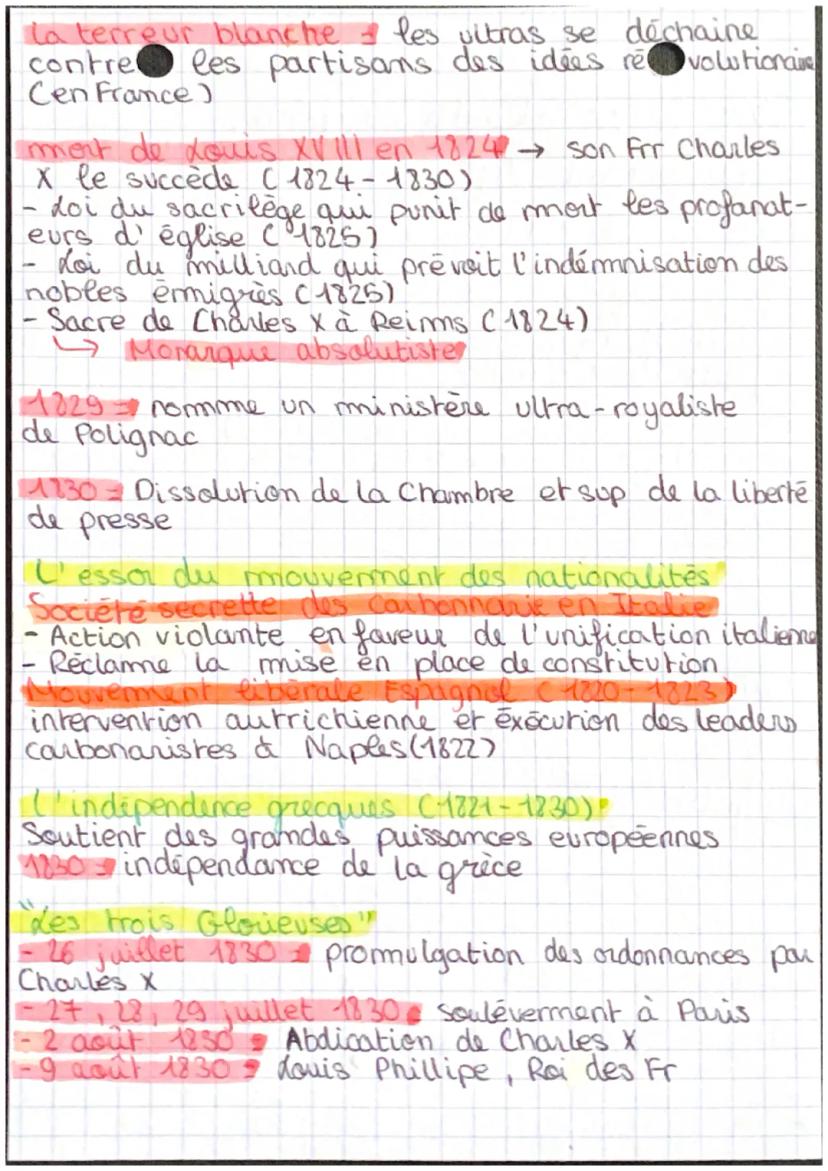 La terreur blanche = les ultras se déchaine
contre les partisans des idées révolutionaire
(en France)
mort de Louis XVIII en 1824 → son Frr Charles
X le succède (1824-1830)
- Loi du sacrilège qui punit de mort les profanat-
eurs d'église (1825)
- Loi du milliard qui prévoit l'indémnisation des
nobles émigrès (1825)
- Sacre de Charles X à Reims (1824)
↳ Monarque absolutiste
1829 = nomme un ministère ultra-royaliste
de Polignac
1830 = Dissolution de la Chambre et sup de la liberté
de presse
L'essor du mouvement des nationalités
Société secrette des Carbonnarie en Italie
- Action violante en faveur de l'unification italienne
- Réclame la mise en place de constitution
Mouvement libérale Espagnol (1820-1823)
intervention autrichienne et éxécution des leaders
carbonaristes à Naples (1822)
L'indépendence grecques (1821-1830)
Soutient des grandes puissances européennes
1830 = indépendance de la grèce
"Les trois Glorieuses"
- 26 juillet 1830 = promulgation des ordonnances par
Charles X
- 27, 28, 29 juillet 1830 = soulévement à Paris
- 2 août 1830 = Abdication de Charles X
- 9 août 1830 = Louis Phillipe, Roi des Fr